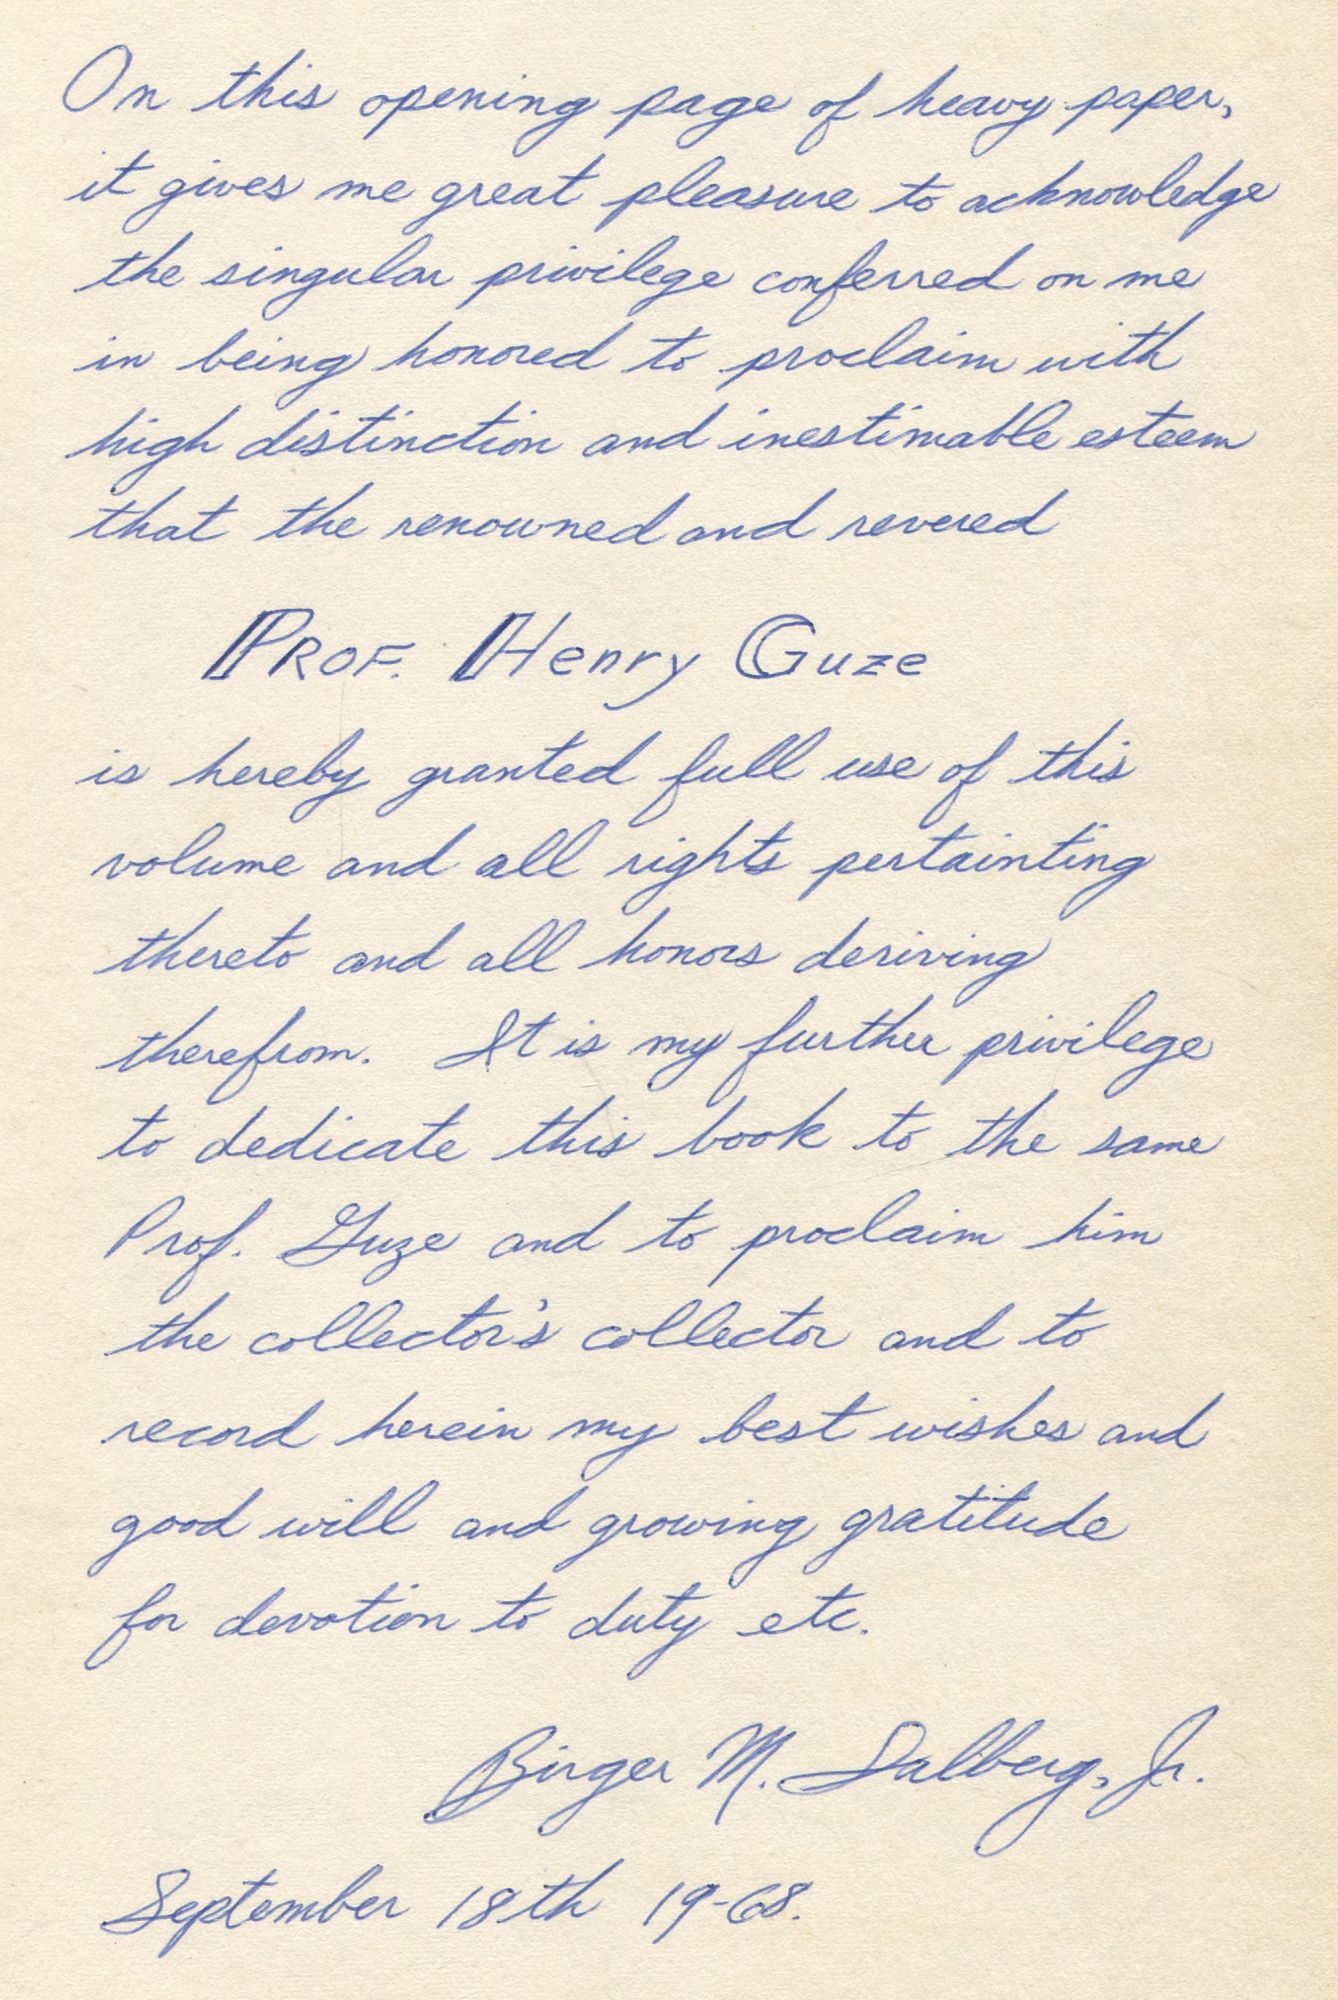 On this opening page of heavy paper,
it gives me great pleasure to acknowledge
the singular privilege conferred on me
in being honored to proclaim with
high distinction and inestimable esteem
that the renowned and revered
PROF. Henry Guze
is hereby granted full use of this
volume and all rights pertainting
thereto and all honors deriving
therefrom. It is my further privilege
to dedicate this book to the same
Prof. Guze and to proclaim him
the collector's collector and to
record herein my best wishes and
good will and growing gratitude
for devotion to duty etc.
Birger M. Salberg, Jr.
September 18th 19-68.